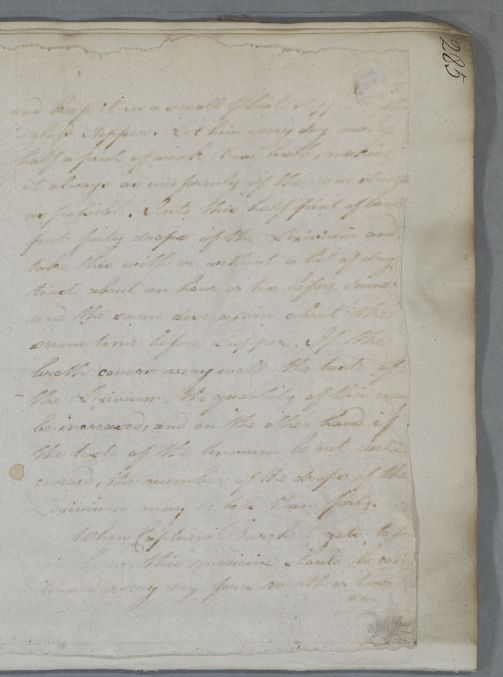 285
and keep it in a small
glass Stopper. Let him every day
half a pint of weak Veal broth, making
it always as uniformly of the same
as possible. Into this half pint of
put forty drops of the Lixivium and
take this with or without a bit of dry
toast about an hour or two before dinner
and the same dose again about the
same time before Supper. If the
broth covers very well the taste of
the Lixivium, the quantity of this may
be increased, and on the other hand if
the taste of the lixivium be not
covered, the number of the drops of the
Lixivium may be less than forty.
When Captain gets to
this medicine should be con
tinued every day for a month or two